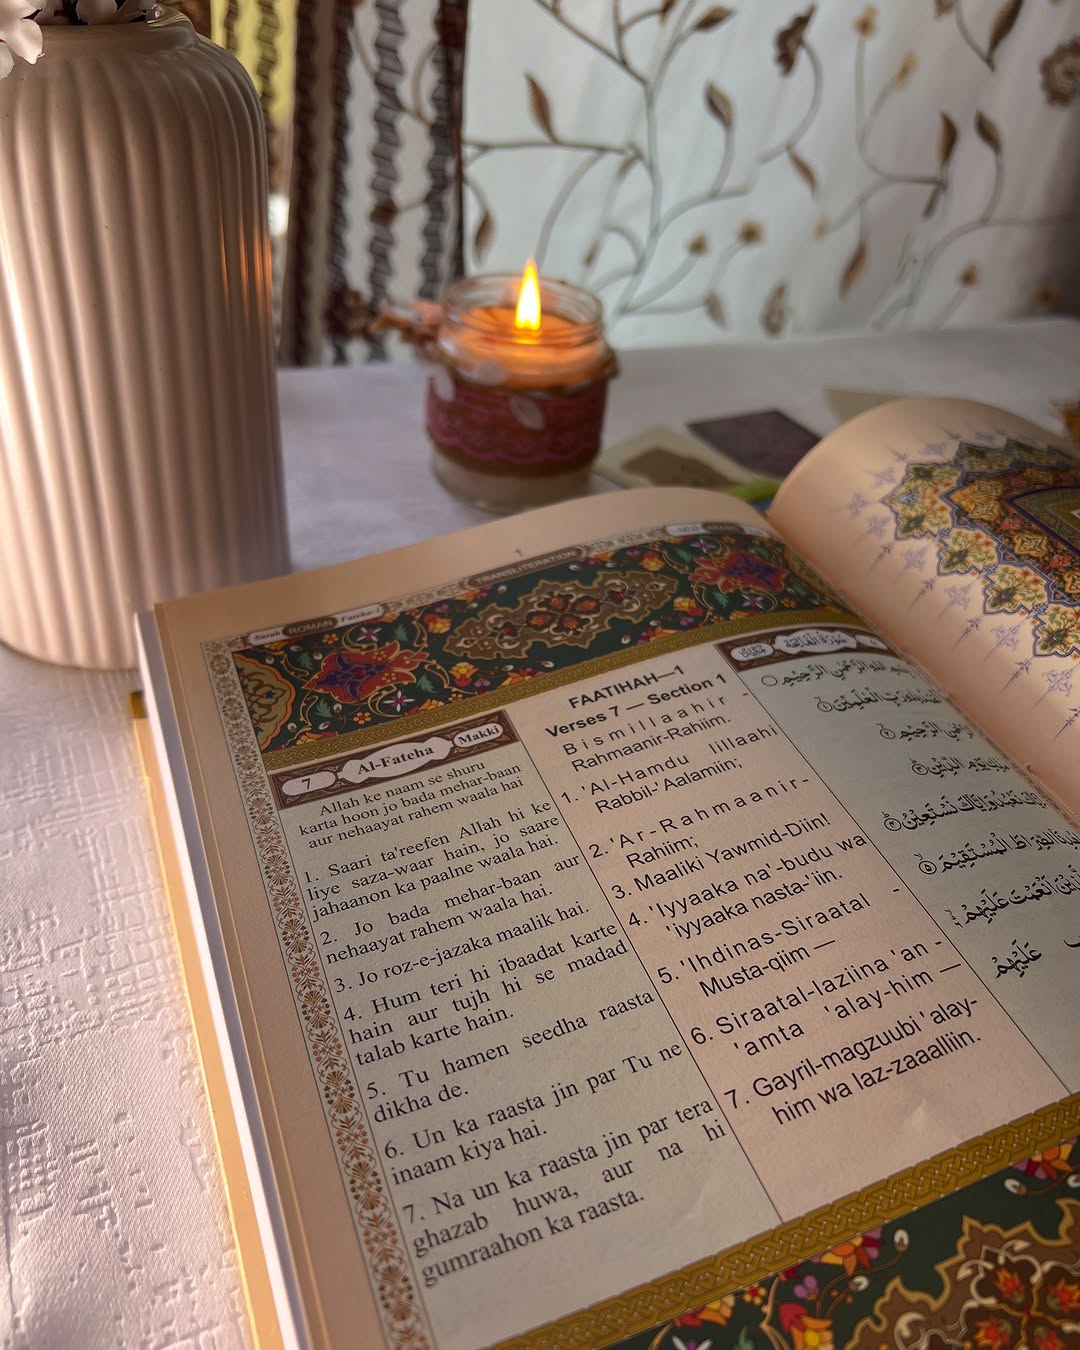 1
TRANSLITERATION
Surah ROMAN Fateha-1
7 Al-Fateha Makki
Allah ke naam se shuru
karta hoon jo bada mehar-baan
aur nehaayat rahem waala hai
1. Saari ta'reefen Allah hi ke
liye saza-waar hain, jo saare
jahaanon ka paalne waala hai.
2. Jo bada mehar-baan aur
nehaayat rahem waala hai.
3. Jo roz-e-jazaka maalik hai.
4. Hum teri hi ibaadat karte
hain aur tujh hi se madad
talab karte hain.
5. Tu hamen seedha raasta
dikha de.
6. Un ka raasta jin par Tu ne
inaam kiya hai.
7. Na un ka raasta jin par tera
ghazab huwa, aur na hi
gumraahon ka raasta.
FAATIHAH—1
Verses 7 — Section 1
Bismillaahir-
Rahmaanir-Rahiim.
1. 'Al-Hamdu lillaahi
Rabbil-'Aalamiin;
2. 'Ar-Rahmaanir-
Rahiim;
3. Maaliki Yawmid-Diin!
4. 'Iyyaaka na'-budu wa
'iyyaaka nasta-'iin.
5. 'Ihdinas-Siraatal -
Musta-qiim —
6. Siraatal-laziina 'an -
'amta 'alay-him —
7. Gayril-magzuubi 'alay-
him wa laz-zaaalliin.
سُوْرَةُ الْفَاتِحَةِ
الرَّحْمٰنِ الرَّحِيْمِ
الْعٰلَمِيْنَ
الرَّحِيْمِ
الدِّيْنِ
نَعْبُدُ وَاِيَّاكَ نَسْتَعِيْنُ ۴
الصِّرَاطَ الْمُسْتَقِيْمَ ۵
اَنْعَمْتَ عَلَيْهِمْ
عَلَيْهِمْ